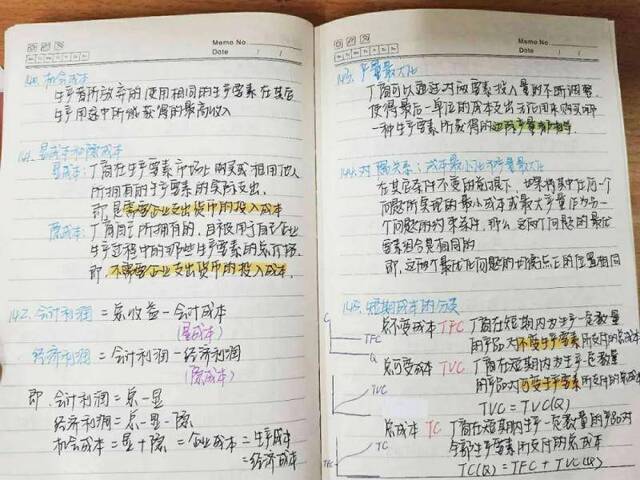 Memo No
Date / /
140. 机会成本
生产者所放弃的使用相同的生产要素在其它
生产用途中所能获得的最高收入
141. 显成本和隐成本
显成本：厂商在生产要素市场上购买或租用他人
所拥有的生产要素的实际支出.
即,是需要企业支出货币的投入成本
隐成本：厂商自己所拥有的,且被用于自己企业
生产过程中的那些生产要素的总价格.
即.不需要企业支出货币的投入成本.
142. 会计利润 = 总收益 - 会计成本
(显成本)
经济利润 = 会计利润 - 经济利润
(隐成本)
即.会计利润 = 总 - 显
经济利润 = 总 - 显 - 隐
机会成本 = 显 + 隐 = 企业成本 = 生产成本
= 经济成本
Memo No
Date / /
143. 产量最大化
厂商可以通过对两要素投入量的不断调整,
使得最后一单位的成本支出无论用来购买哪
一种生产要素所获得的边际产量都相等.
144. 对偶关系：成本最小化和产量最大化
在其它条件不变的前提下,如果将其中任何一个
问题所实现的最小成本或最大产量作为另一
个问题的约束条件,那么,这两个问题的最优
要素组合是相同的
即,这两个最优化问题的均衡点E的位置相同
145. 短期成本的分类
C
TFC
Q
总不变成本 TFC 厂商在短期内为生产一定数量
的产品对不变生产要素所支付的总成本
TVC
总可变成本 TVC 厂商在短期内为生产一定数量
的产品对可变生产要素所支付的总成本
TVC = TVC(Q)
TC
总成本 TC 厂商在短期内生产一定数量的产品对
全部生产要素所支付的总成本
TC(Q) = TFC + TVC(Q)